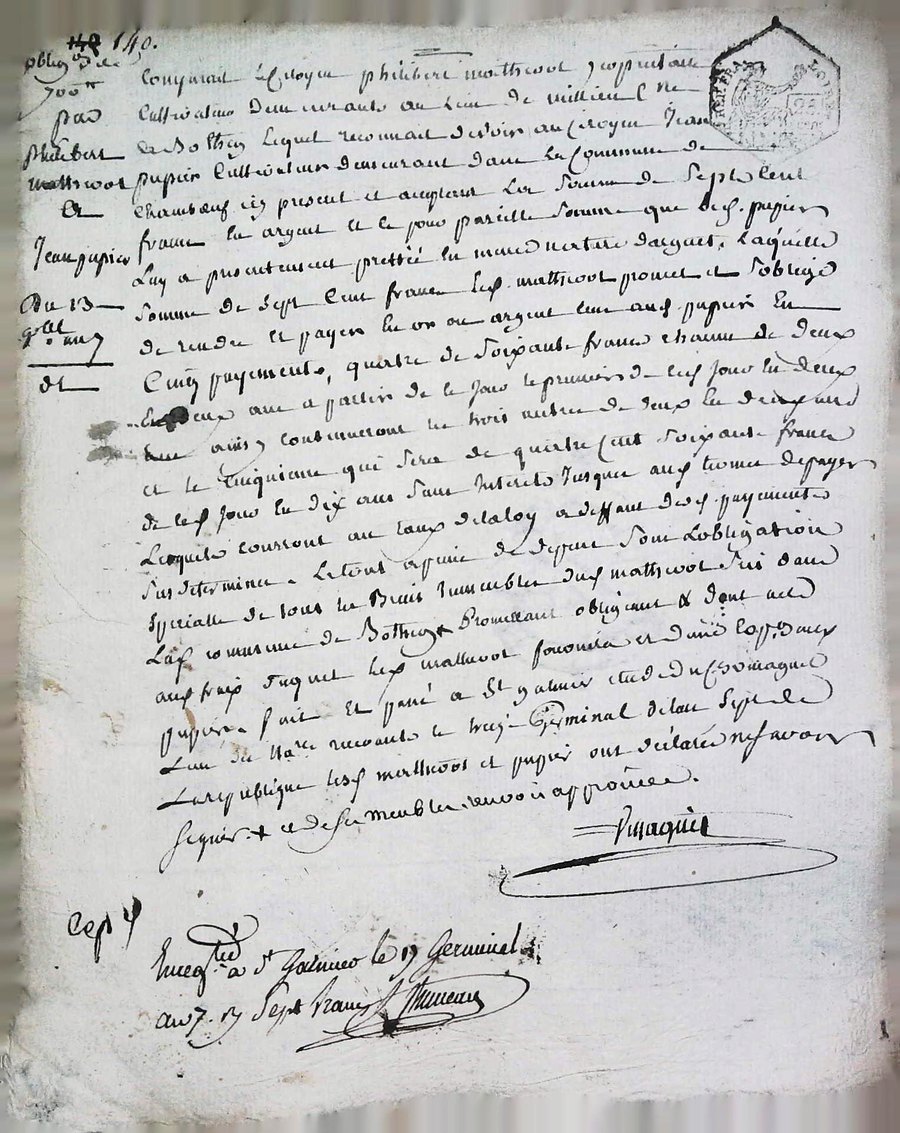 140.
oblig.on de
700 tt
par
philibert
mathevot
a
Jean pupier
Du 13
g.al an 7
dt
Comparait Le Citoyen philibert mathevot propriétaire
Cultivateur demeurant au Lieu de millieu Cne
de Bothéon Lequel reconnait devoir au Citoyen Jean
pupier Cultivateur demeurant dans La Commune de
Chambeuf icy present et acceptant La Somme de Sept Cent
franc en argent et ce pour pareille Somme que led. pupier
Luy a presentement prettée en même nature d'argent, Laquelle
Somme de Sept Cent franc led. mathevot promet et s'oblige
de rendre et payer en or ou argent aud. pupier En
Cinq payements, quatre de Soixante franc chacun de deux
en deux ans a partir de ce Jour le premier de ced. Jour en deux
ans ainsy continueront les trois autres de deux en deux ans
et le Cinquieme qui Sera de quatre Cent Soixante franc
de ced. Jour en dix ans Sans Interets Jusque aud. termes de payer
Lesquels courront au taux de la loy a deffaut desd. payements
Sus determinés. Le tout a peine de depens Sous L'obligation
Specialle de tous les Biens Immeubles dud. mathevot Sis dans
Lad. commune de Bothéon + Promettant obligeant & dont acte
aux frais duquel led. mathevot fournira
pupier. fait Et passé a St galmier etude du Cn
L'un des Nores recevants le treize Germinal de l'an Sept de
La republique lesd. mathevot et pupier ont déclaré ne savoir
Signer. + et de ses meubles. renvoi approuvé.
Enreg.tré à St Galmier le 19 Germinal
an 7. Sept franc